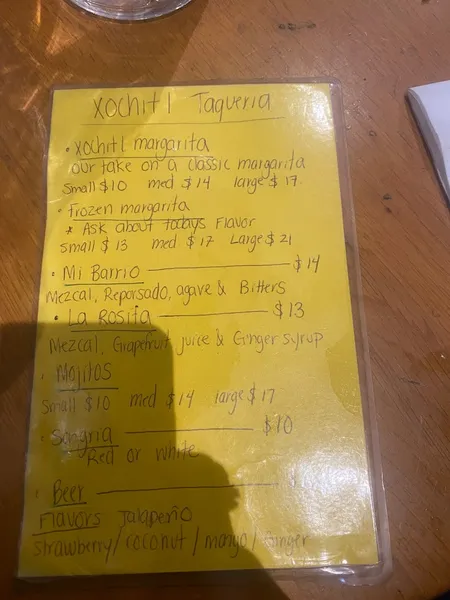 Xochitl Taqueria
• Xochitl margarita
our take on a classic margarita
Small $10 med $14 large $17
• Frozen margarita
* Ask about todays Flavor
Small $13 med $17 Large $21
• Mi Barrio $14
Mezcal, Reporsado, agave & Bitters
• La Rosita $13
Mezcal, Grapefruit juice & Ginger syrup
• Mojitos
Small $10 med $14 large $17
• Sangria $10
Red or white
• Beer
Flavors Jalapeño
Strawberry/coconut/mango/Ginger